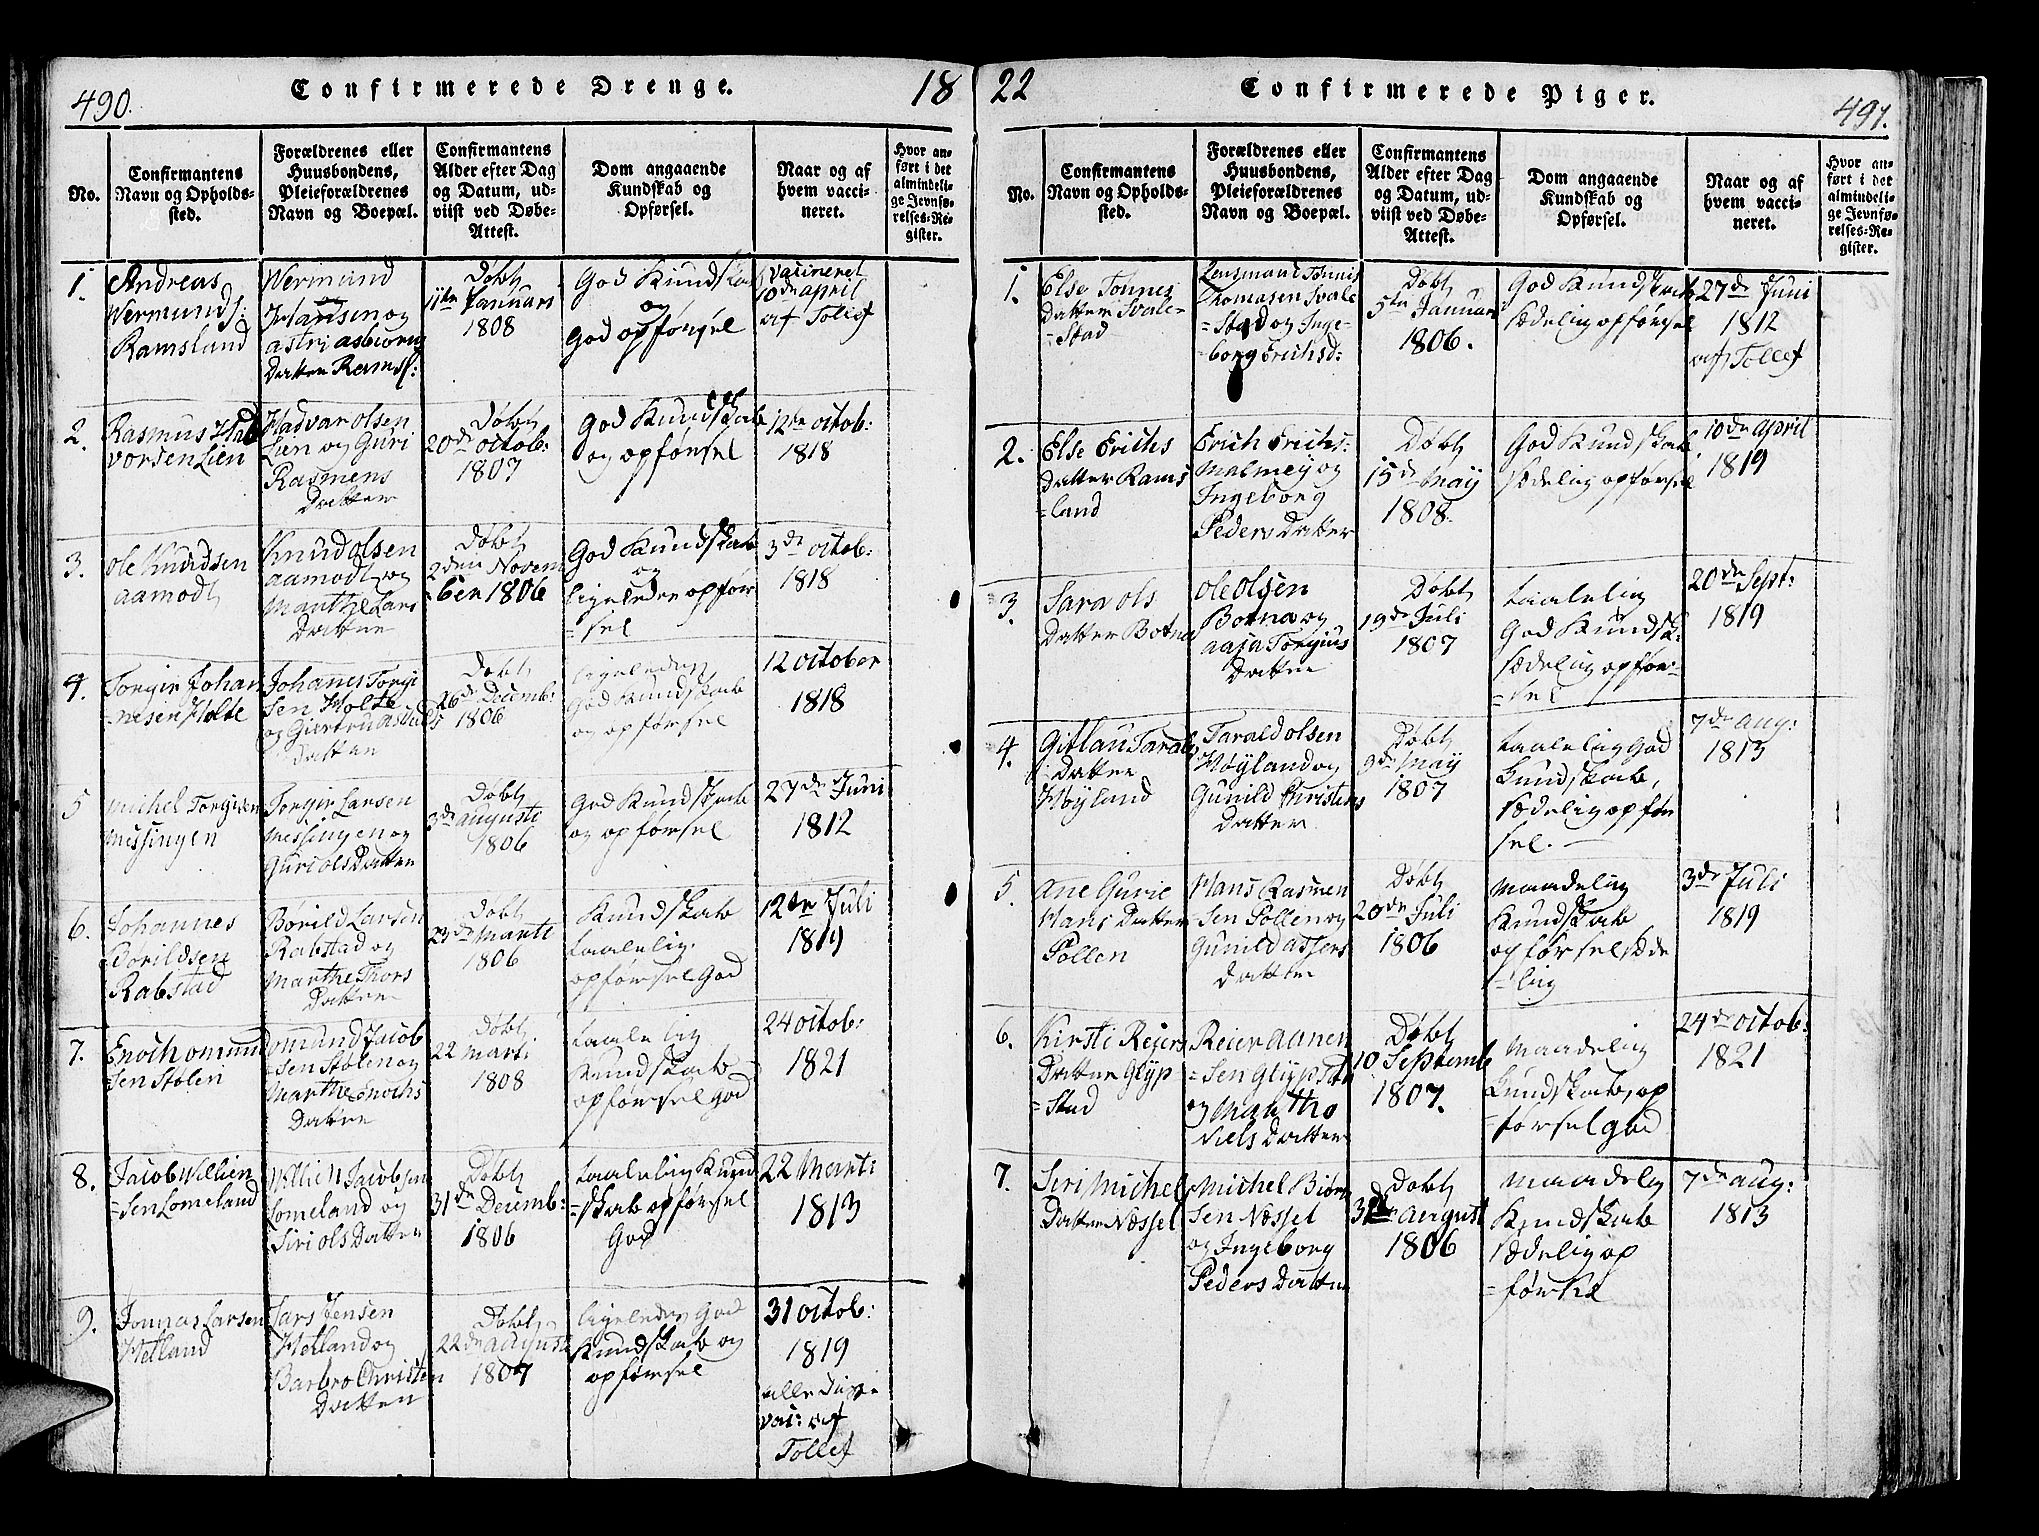 490.
Confirmerede Drenge.
18
No.
Confirmantens
Navn og Opholds-
sted.
Forældrenes eller
Huusbondens,
Pleieforældrenes
Navn og Boepæl.
Confirmantens
Alder efter Dag
og Datum, ud-
viist ved Døbe-
Attest.
Dom angaaende
Kundskab og
Opførsel.
Naar og af
hvem vacci-
neret.
Hvor an-
ført i det
almindeli-
ge Jevnfø-
relses-Re-
gister.
1.
Andreas
Wermunds:
Ramsland
Wermund
Hansen og
Astri asbiorns
Datter Ramsl:
Døbt
11te Januari
1808
God Kundskab
og
God opførsel
Vacineret
10de april
af Tollef
2.
Rasmus Hal
vorsen Lien
Hadvar olsen
Lien og Guri
Rasmens
Datter
Døbt
20de octob:
1807
God Kundskab
og opførsel
12te octob:
1818
3.
Ole Knudsen
aamodt
Knud olsen
aamodt og
Marthe Lars
Datter
Døbt
2den Novem
=ber 1806
God Kundskab
og
ligeledes opfør
=sel
3de octob:
1818
4.
Torgir Johan
=nesen Holte
Johanes Torgi
sen Holte
og Giertru Aslaks
Datter
Døbt
26de Decemb:
1806
ligeledes
God Kundskab
og opførsel
12 october
1818
5
Michel Torgisen
Messingen
Torgir Larsen
Messingen og
Guri ols Datter
Døbt
3de augusti
1806
God Kundskab
og opførsel
27de Juni
1812
6.
Johannes
Børildsen
Rabstad
Børild Larsen
Rabstad og
Marthe Thors
Datter
Døbt
23de Marti
1806
Kundskab
taalelig
opførsel God
12te Juli
1819
7.
Enoch omund
=sen Stølen
omund Jacob
=sen Stølen og
Marthe Enochs
Datter
Døbt
22 Marti
1808
taalelig
Kundskab
opførsel god
24 octob:
1821
8.
Jacob Willien
=sen Lomeland
Willich Jacobsen
Lomeland og
Siri ols Datter
Døbt
31de Decemb:
1806
taalelig Kund
=skab opførsel
God
22 Marti
1813
9.
Jonnas Larsen
Hetland
Lars Jensen
Hetland og
Barbro Christen
Datter
Døbt
22de august
1807
ligeledes God
Kundskab og
opførsel
31 octob:
1819
alle disse
vac: af
Tollef
22
Confirmerede Piger.
491.
No.
Confirmantens
Navn og Opholds-
sted.
Forældrenes eller
Huusbondens,
Pleieforældrenes
Navn og Boepæl.
Confirmantens
Alder efter Dag
og Datum, ud-
viist ved Døbe-
Attest.
Dom angaaende
Kundskab og
Opførsel.
Naar og af
hvem vacci-
neret.
Hvor an-
ført i det
almindeli-
ge Jevnfø-
relses-Re-
gister.
1.
Else Tonnes
Datter Svale-
=Stad
Lensmand Tønnis
Thomasen Svale
=Stad og Inge-
=borg Erichsd:
Døbt
5te Januari
1806.
God Kundskab
sædelig opførsel
27de Juni
1812
af Tollef
2.
Else Erichs
Datter Rams
=land
Erich Erichs:
Malmey og
Ingeborg
Peders Datter
Døbt
15de May
1808.
God Kundskab
sædelig opførsel
10de april
1819
3.
Sara ols
Datter Botne
ole olsen
Botna og
aasa Torgius
Datter
Døbt
19de Juli
1807
taalelig
God Kundsk:
sædelig opfør-
=sel
20de Sept:
1819
4.
Gitlau Taralds
Datter
Høyland
Tarald olsen
Høyland og
Gunild Christens
Datter
Døbt
9de May
1807
taalelig God
Kundskab,
sædelig opfør
sel.
7de aug:
1813
5.
Ane Gurie
Hans Datter
Pollen
Hans Rasmen
=sen Pollen og
Gunild assers
Datter
Døbt
20de Juli
1806
maadelig
Kundskab
opførsel sæde
=lig
3de Juli
1819
6.
Kirsti Reiers
Datter Glyp
=Stad
Reier aanen
=sen Glypstad
og Marthe
Niels Datter
Døbt
10 Septemb
1807.
maadelig
Kundskab, op
=førsel god
24de octob:
1821
7.
Siri Michels
Datter Næssel
Michel Biørn
sen Næssel
og Ingeborg
Peders Datter
Døbt
31de august
1806
maadelig
Kundskab
sædelig op
=førsel
7de aug:
1813